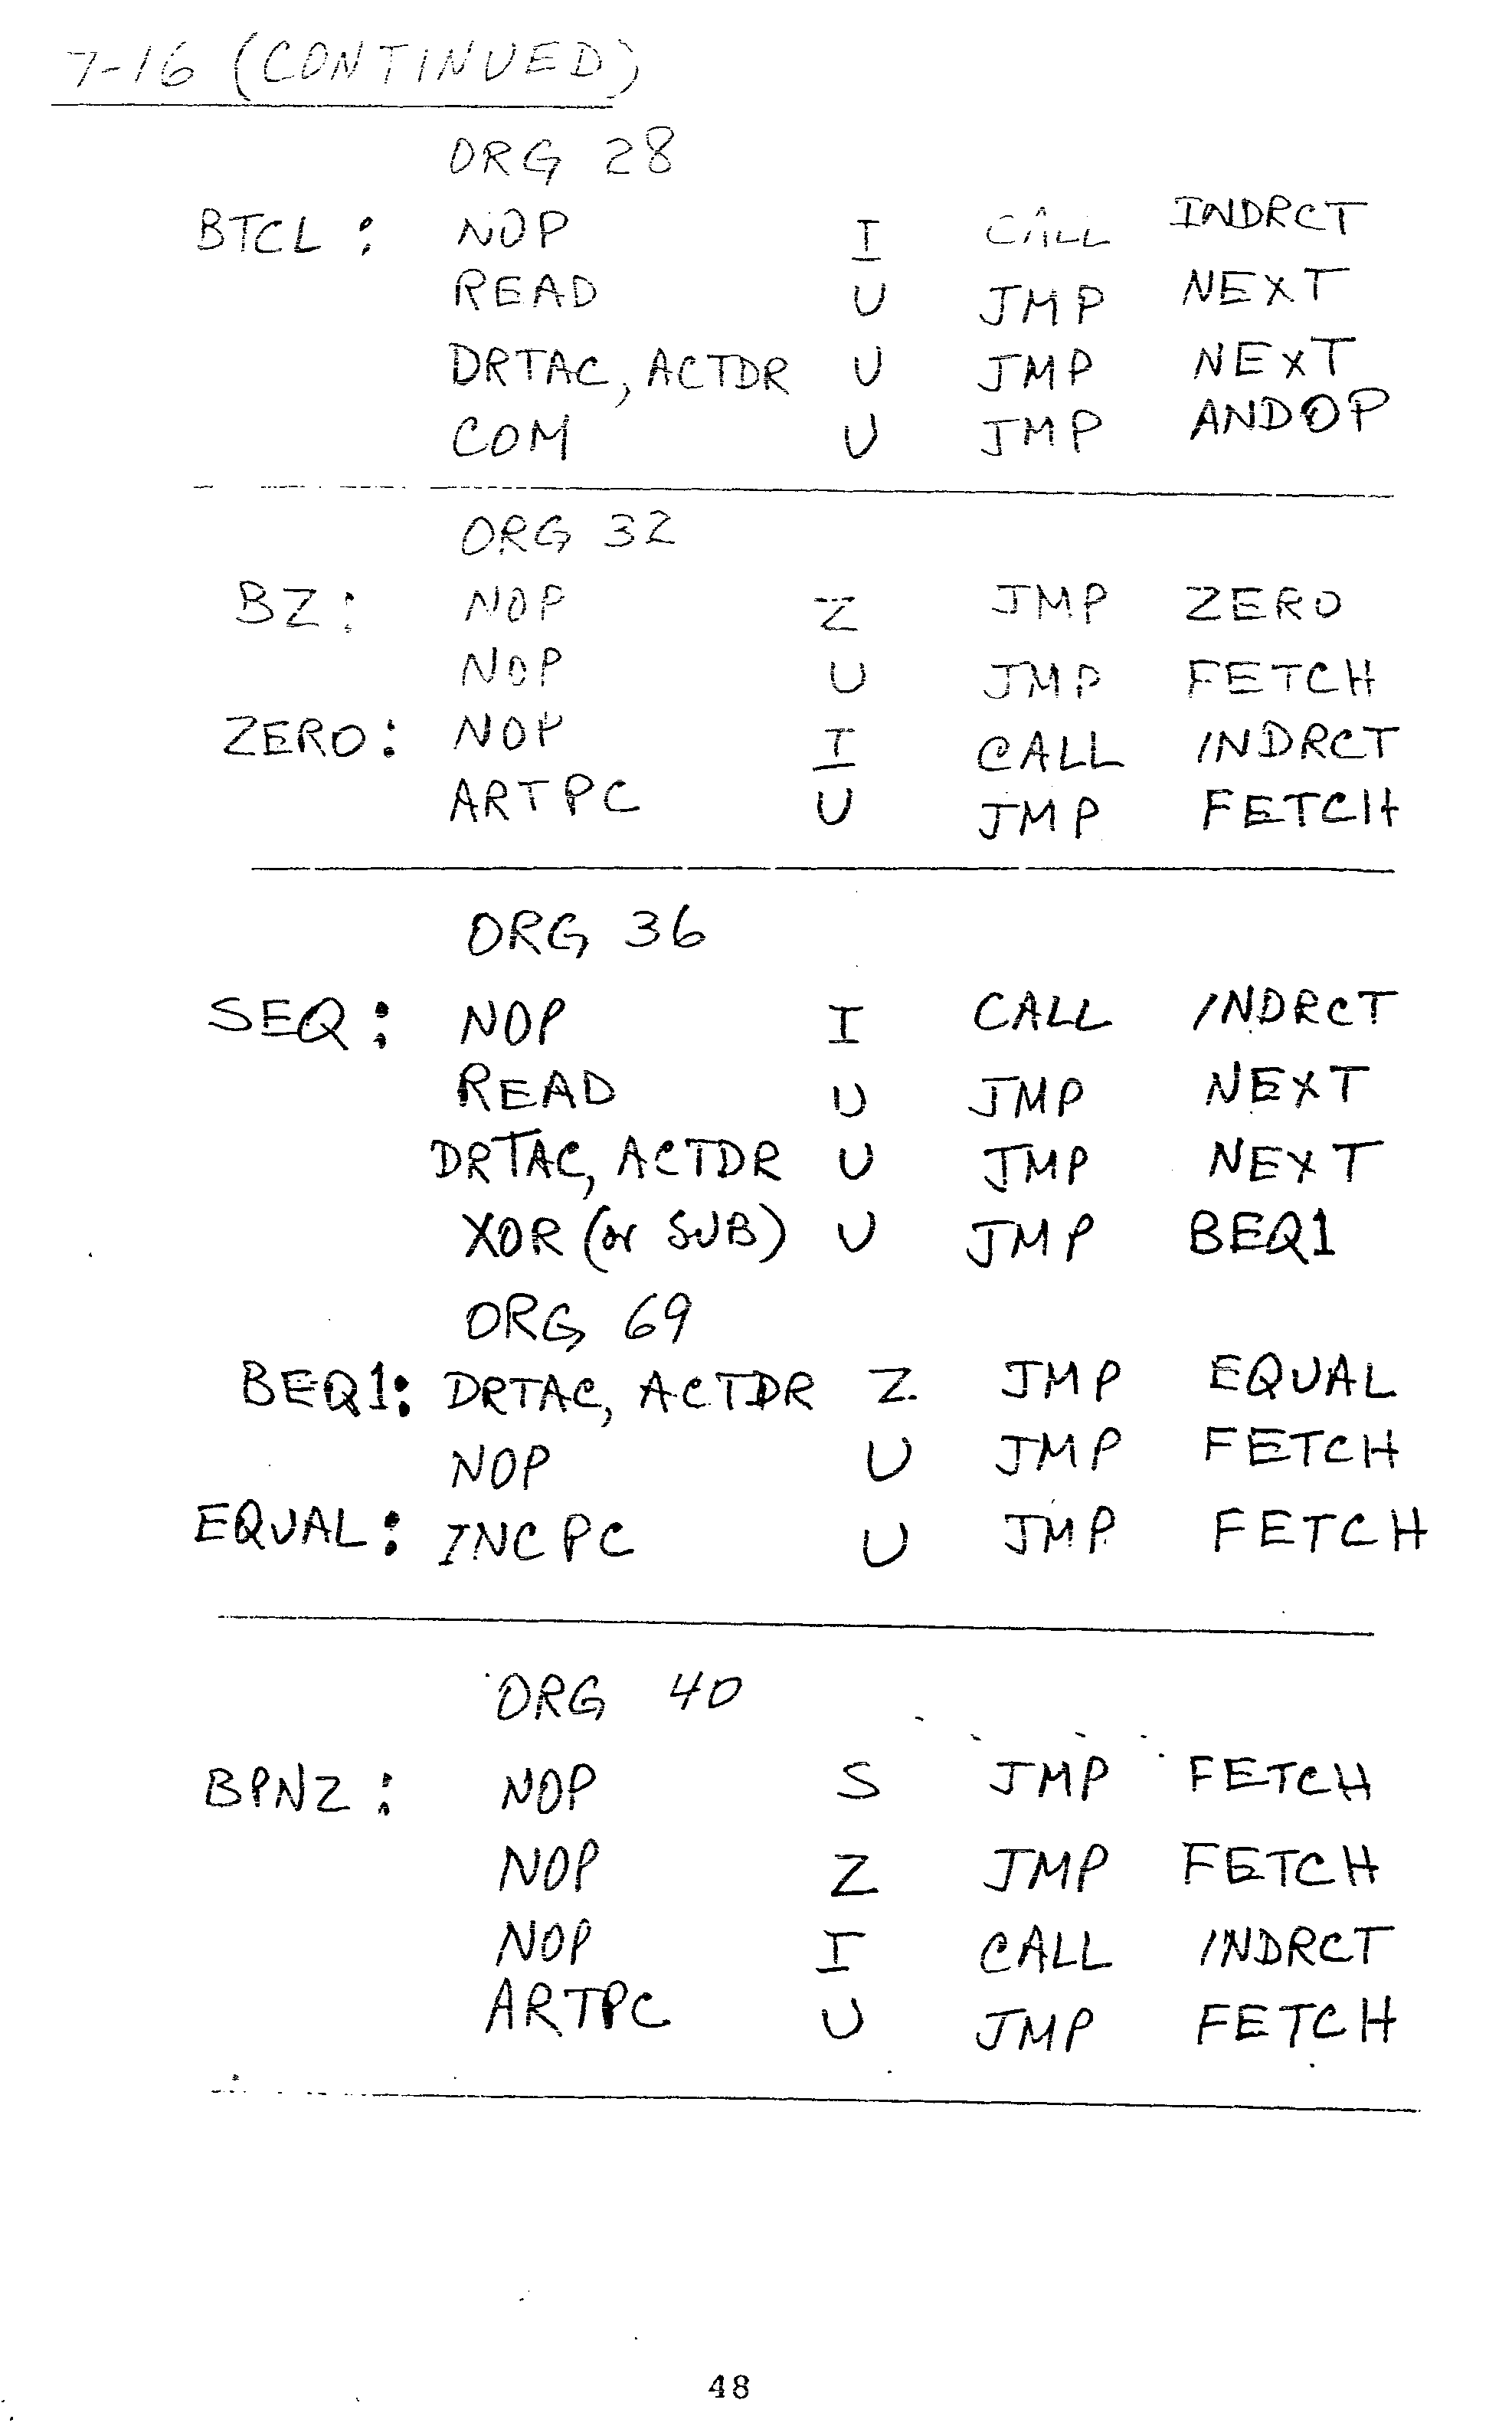 7-16 (CONTINUED)
ORG 28
BTCL : NOP I CALL INDRCT
READ U JMP NEXT
DRTAC, ACTDR U JMP NEXT
COM U JMP ANDOP
ORG 32
BZ : NOP Z JMP ZERO
NOP U JMP FETCH
ZERO : NOP I CALL INDRCT
ARTPC U JMP FETCH
ORG 36
SEQ : NOP I CALL INDRCT
READ U JMP NEXT
DRTAC, ACTDR U JMP NEXT
XOR (or SUB) U JMP BEQ1
ORG 69
BEQ1: DRTAC, ACTDR Z JMP EQUAL
NOP U JMP FETCH
EQUAL: INCPC U JMP FETCH
ORG 40
BPNZ : NOP S JMP FETCH
NOP Z JMP FETCH
NOP I CALL INDRCT
ARTPC U JMP FETCH
48